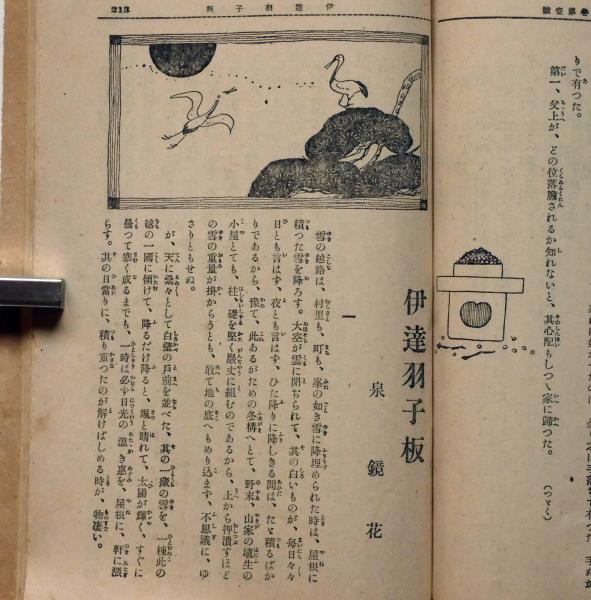 號壹第卷
りで有つた。
第一、父上が、どの位落膽されるか知れないと、其心配もしつゝ家に歸つた。
（つゞく）
213
伊達羽子板
伊達羽子板
泉鏡花
一
雪の越路は、村里も、町も、峯の如き雪に降埋められた時は、屋根に
積つた雪を降ろす。大空が雲に閉ぢられて、其の白いものが、毎日々々
日とも言はず、夜とも言はず、ひた降りに降りしきる間は、たゞ積るばか
りであるから、豫て、此あるがための冬構へとて、野末、山家の埴生の
小屋とても、柱、礎を堅く嚴丈に組むのであるから、上から押潰すほど
の雪の重量が掛からうとも、敢て地の底へもめり込まず、不思議に、ゆ
さりともせぬ。
が、天に
々として白壁の戸前を並べた、其の一藏の雪を、一棟此の
越の一國に傾けて、降るだけ降ると、颯と晴れて、太陽が輝く、すぐに
曇つて寒く成るまでも、一時は必ず日光の温き惠を、屋根に、軒に漲
らす。其の日當りに、積り重つたのが解けばじめる時が、物凄い。